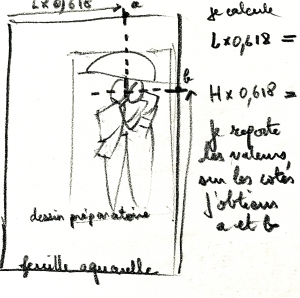 L x 0,618
a
je calcule
L x 0,618 =
b
H x 0,618 =
Je reporte
les valeurs
sur les cotés
j'obtiens
a et b
dessin préparatoire
feuille aquarelle